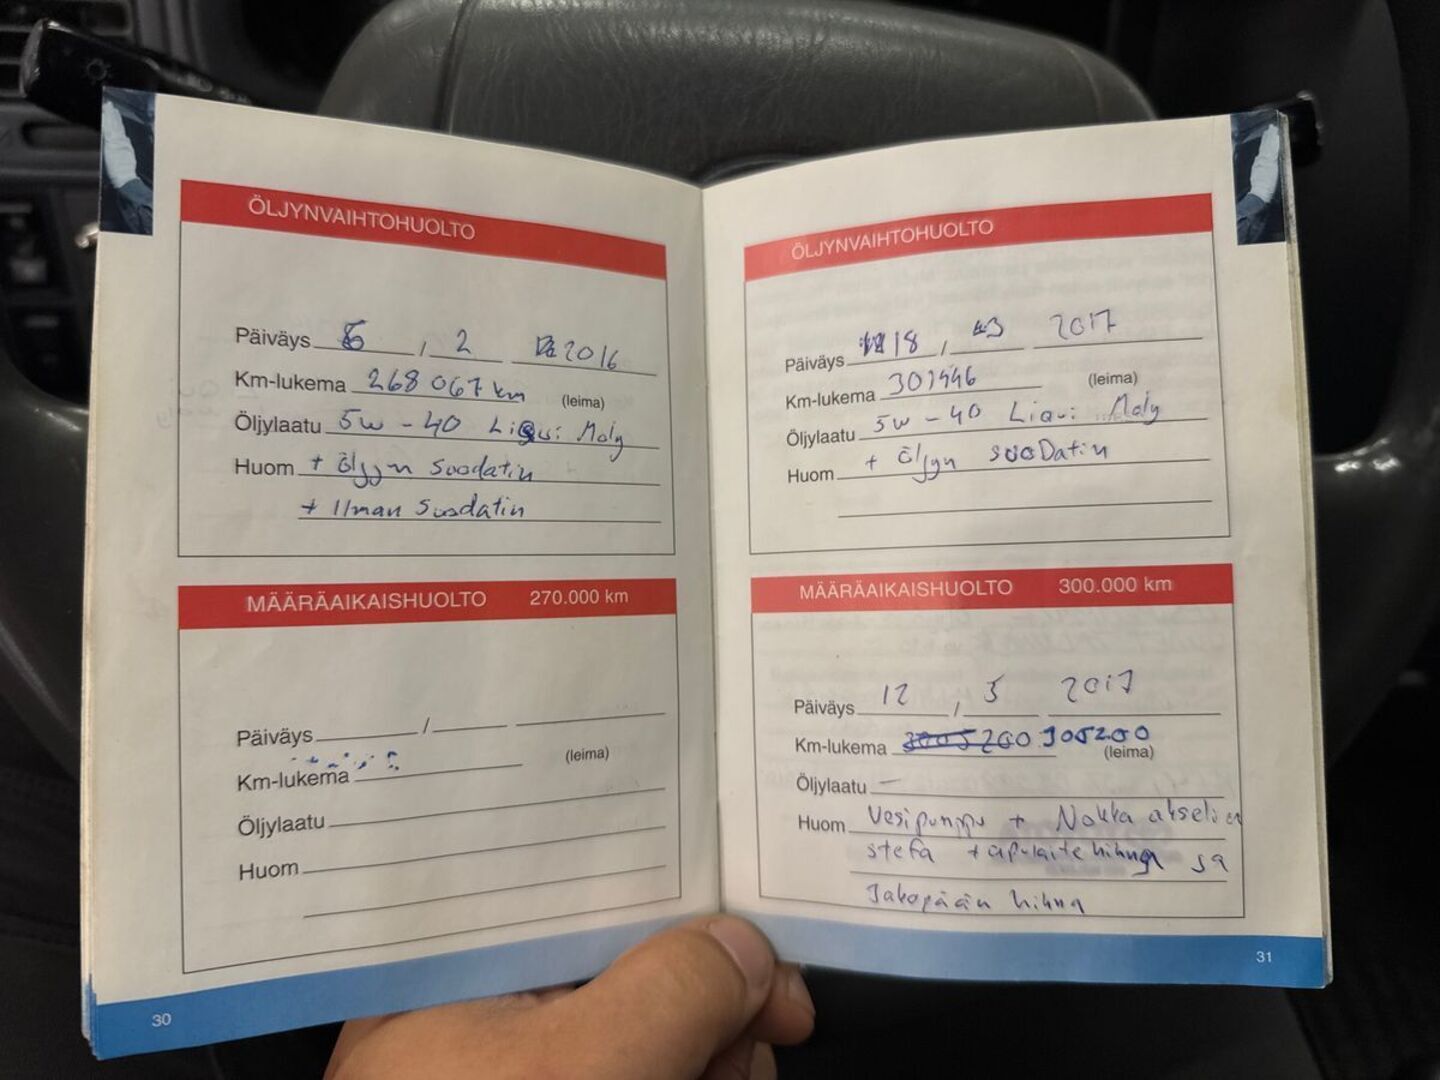 ÖLJYNVAIHTOHUOLTO
Päiväys 6 / 2 2016
Km-lukema 268 067 km (leima)
Öljylaatu 5w - 40 Liqui Moly
Huom + öljyn suodatin
+ Ilman suodatin
MÄÄRÄAIKAISHUOLTO 270.000 km
Päiväys /
Km-lukema (leima)
Öljylaatu
Huom
30
ÖLJYNVAIHTOHUOLTO
Päiväys 18 / 3 2017
Km-lukema 301446 (leima)
Öljylaatu 5w - 40 Liqui Moly
Huom + öljyn suoDatin
MÄÄRÄAIKAISHUOLTO 300.000 km
Päiväys 12 / 5 2017
Km-lukema 305200 (leima)
Öljylaatu –
Huom Vesipumppu + Nokka akselien
stefa + apulaitehihna ja
Jakopään hihna
31